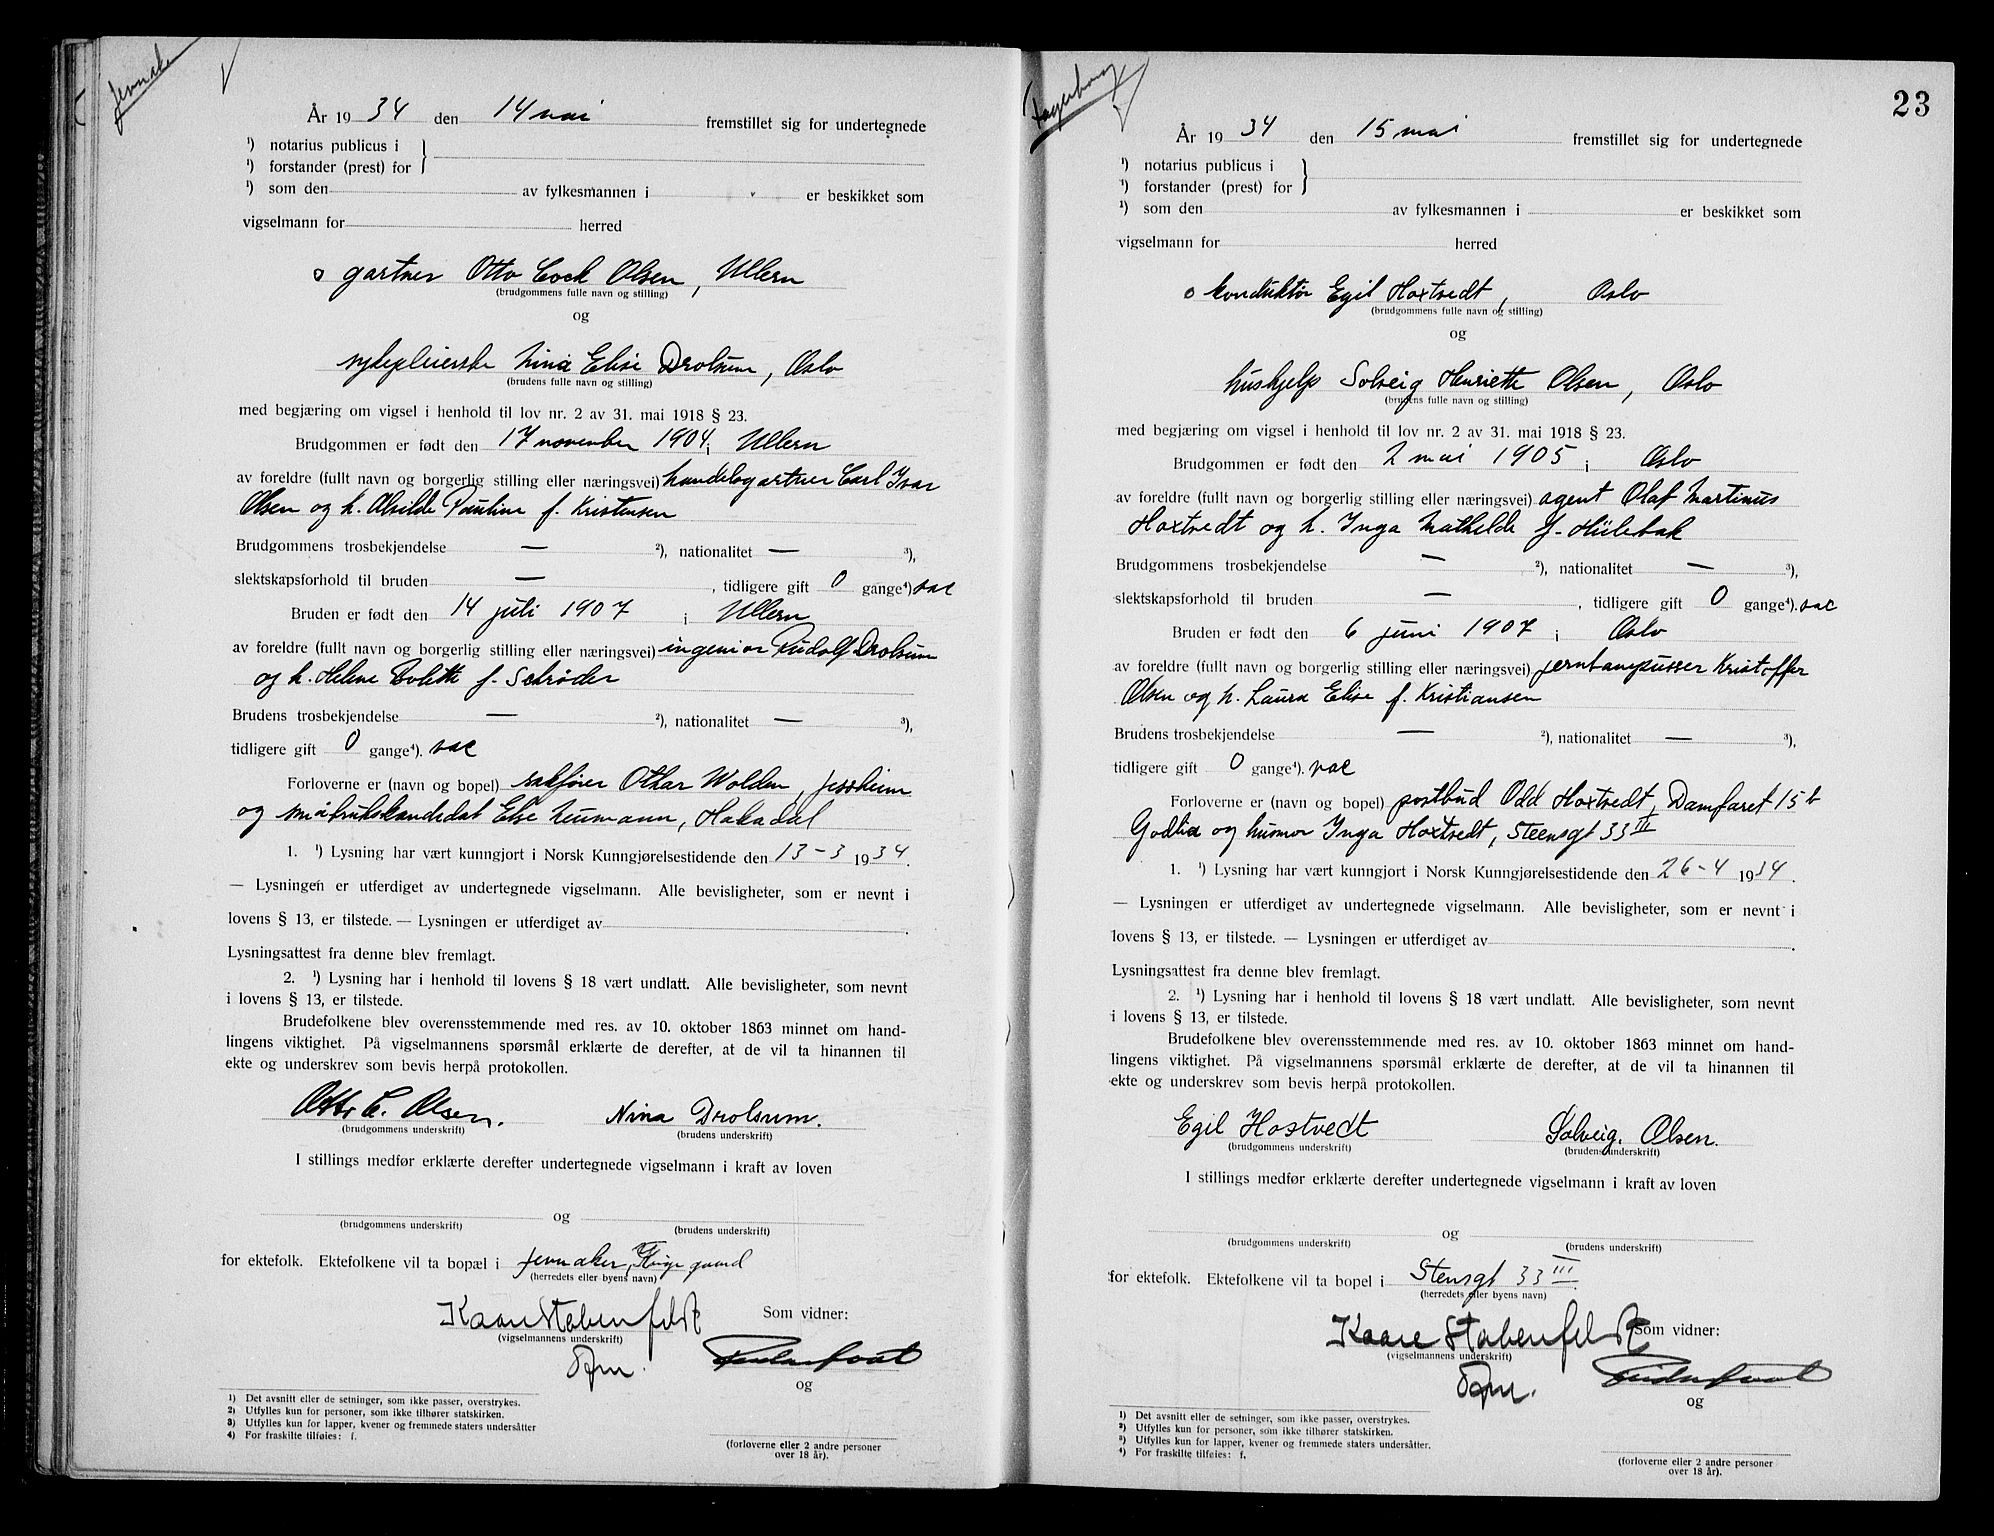 Jevnaker
År 1934 den 14 mai fremstillet sig for undertegnede
¹) notarius publicus i
¹) forstander (prest) for
¹) som den av fylkesmannen i er beskikket som
vigselmann for herred
gartner Otto Cock Olsen, Ullern
(brudgommens fulle navn og stilling)
og
sykepleierske Nina Elise Drolsum, Oslo
(brudens fulle navn og stilling)
med begjæring om vigsel i henhold til lov nr. 2 av 31. mai 1918 § 23.
Brudgommen er født den 17 november 1904 i Ullern
av foreldre (fullt navn og borgerlig stilling eller næringsvei) handelsgartner Carl Ivar
Olsen og h. Alvilde Pauline f. Kristensen
Brudgommens trosbekjendelse — ²), nationalitet — ³),
slektskapsforhold til bruden — , tidligere gift 0 gange⁴) vac
Bruden er født den 14 juli 1907 i Ullern
av foreldre (fullt navn og borgerlig stilling eller næringsvei) ingeniør Rudolf Drolsum
og h. Helene Bolette f. Schrøder
Brudens trosbekjendelse — ²), nationalitet — ³),
tidligere gift 0 gange⁴). vac
Forloverne er (navn og bopel) sakfører Othar Wolden, Jessheim
og småbrukskandidat Else Neumann, Hakadal
1. ¹) Lysning har vært kunngjort i Norsk Kunngjørelsestidende den 13-3 1934.
— Lysningen er utferdiget av undertegnede vigselmann. Alle bevisligheter, som er nevnt i
lovens § 13, er tilstede. — Lysningen er utferdiget av .
Lysningsattest fra denne blev fremlagt.
2. ¹) Lysning har i henhold til lovens § 18 vært undlatt. Alle bevisligheter, som nevnt
i lovens § 13, er tilstede.
Brudefolkene blev overensstemmende med res. av 10. oktober 1863 minnet om hand-
lingens viktighet. På vigselmannens spørsmål erklærte de derefter, at de vil ta hinannen til
ekte og underskrev som bevis herpå protokollen.
Otto C. Olsen. Nina Drolsum.
(brudgommens underskrift) (brudens underskrift)
I stillings medfør erklærte derefter undertegnede vigselmann i kraft av loven
og
(brudgommens underskrift) (brudens underskrift)
for ektefolk. Ektefolkene vil ta bopæl i Jevnaker,
(herredets eller byens navn)
Kaare Stabenfeldt Som vidner:
(vigselmannens underskrift)
og
1) Det avsnitt eller de setninger, som ikke passer, overstrykes.
2) Utfylles kun for personer, som ikke tilhører statskirken.
3) Utfylles kun for lapper, kvener og fremmede staters undersåtter
4) For fraskilte tilføies: f.
(forloverne eller 2 andre personer
over 18 år).
Fagerborg
23
År 1934 den 15 mai fremstillet sig for undertegnede
¹) notarius publicus i
¹) forstander (prest) for
¹) som den av fylkesmannen i er beskikket som
vigselmann for herred
konduktør Egil Hoxtvedt, Oslo
(brudgommens fulle navn og stilling)
og
hushjelp Solveig Henriette Olsen, Oslo
(brudens fulle navn og stilling)
med begjæring om vigsel i henhold til lov nr. 2 av 31. mai 1918 § 23.
Brudgommen er født den 2 mai 1905 i Oslo
av foreldre (fullt navn og borgerlig stilling eller næringsvei) agent Olaf Martinus
Hoxtvedt og h. Inga Mathilde f. Hülebak
Brudgommens trosbekjendelse — ²), nationalitet — ³),
slektskapsforhold til bruden — , tidligere gift 0 gange⁴). vac
Bruden er født den 6 juni 1907 i Oslo
av foreldre (fullt navn og borgerlig stilling eller næringsvei) jernbanepusser Kristoffer
Olsen og h. Laura Elise f. Kristiansen
Brudens trosbekjendelse — ²), nationalitet — ³),
tidligere gift 0 gange⁴). vac
Forloverne er (navn og bopel) postbud Odd Hoxtvedt, Damfaret 15b
Godlia og husmor Inga Hoxtvedt, Steensgt 33 III
1. ¹) Lysning har vært kunngjort i Norsk Kunngjørelsestidende den 26-4 1934.
— Lysningen er utferdiget av undertegnede vigselmann. Alle bevisligheter, som er nevnt i
lovens § 13, er tilstede. — Lysningen er utferdiget av .
Lysningsattest fra denne blev fremlagt.
2. ¹) Lysning har i henhold til lovens § 18 vært undlatt. Alle bevisligheter, som nevnt
i lovens § 13, er tilstede.
Brudefolkene blev overensstemmende med res. av 10. oktober 1863 minnet om hand-
lingens viktighet. På vigselmannens spørsmål erklærte de derefter, at de vil ta hinannen til
ekte og underskrev som bevis herpå protokollen.
Egil Hostvedt Solveig. Olsen.
(brudgommens underskrift) (brudens underskrift)
I stillings medfør erklærte derefter undertegnede vigselmann i kraft av loven
og
(brudgommens underskrift) (brudens underskrift)
for ektefolk. Ektefolkene vil ta bopel i Stensgt 33 III
(herredets eller byens navn)
Kaare Stabenfeldt Som vidner:
(vigselmannens underskrift)
og
1) Det avsnitt eller de setninger, som ikke passer, overstrykes.
2) Utfylles kun for personer, som ikke tilhører statskirken.
3) Utfylles kun for lapper, kvener og fremmede staters undersåtter.
4) For fraskilte tilføies: f.
(forloverne eller 2 andre personer
over 18 år).